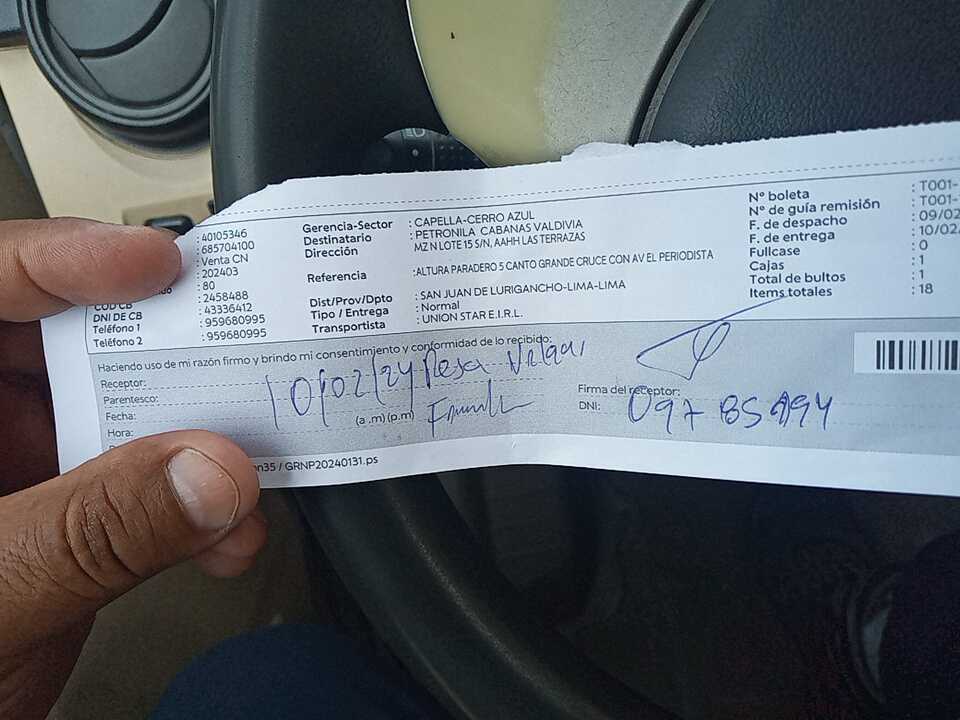 : 40105346
: 685704100
: Venta CN
: 202403
: 80
: 2458488
DNI DE CB : 43336412
Teléfono 1 : 959680995
Teléfono 2 : 959680995
Gerencia-Sector : CAPELLA-CERRO AZUL
Destinatario : PETRONILA CABANAS VALDIVIA
Dirección MZ N LOTE 15 S/N, AAHH LAS TERRAZAS
Referencia :ALTURA PARADERO 5 CANTO GRANDE CRUCE CON AV EL PERIODISTA
Dist/Prov/Dpto : SAN JUAN DE LURIGANCHO-LIMA-LIMA
Tipo / Entrega : Normal
Transportista : UNION STAR E.I.R.L.
Nº boleta : T001-
Nº de guía remisión : T001-
F. de despacho : 09/02
F. de entrega : 10/02
Fullcase : 0
Cajas : 1
Total de bultos : 1
Items totales : 18
Haciendo uso de mi razón firmo y brindo mi consentimiento y conformidad de lo recibido:
Receptor:
Parentesco:
Fecha: 10/02/24 Rosa
Hora: (a .m) (p.m)
Firma del receptor:
DNI:
/ GRNP20240131.ps